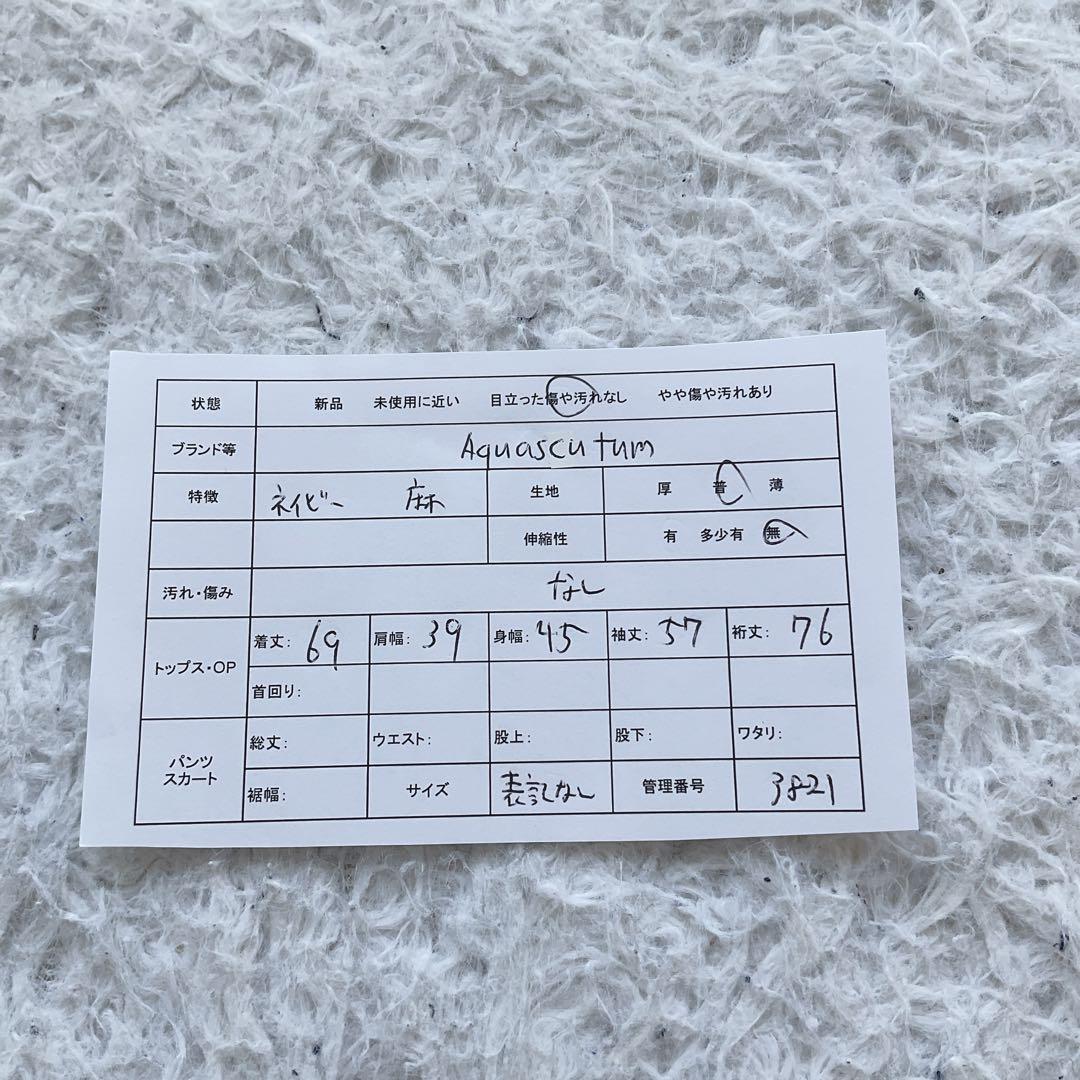 状態 新品 未使用に近い 目立った傷や汚れなし やや傷や汚れあり
ブランド等 Aquascutum
特徴 ネイビー 麻 生地 厚 普 薄
伸縮性 有 多少有 無
汚れ・傷み なし
トップス・OP 着丈: 69 肩幅: 39 身幅: 45 袖丈: 57 裄丈: 76
首回り:
パンツ スカート 総丈: ウエスト: 股上: 股下: ワタリ:
裾幅: サイズ 表記なし 管理番号 3821